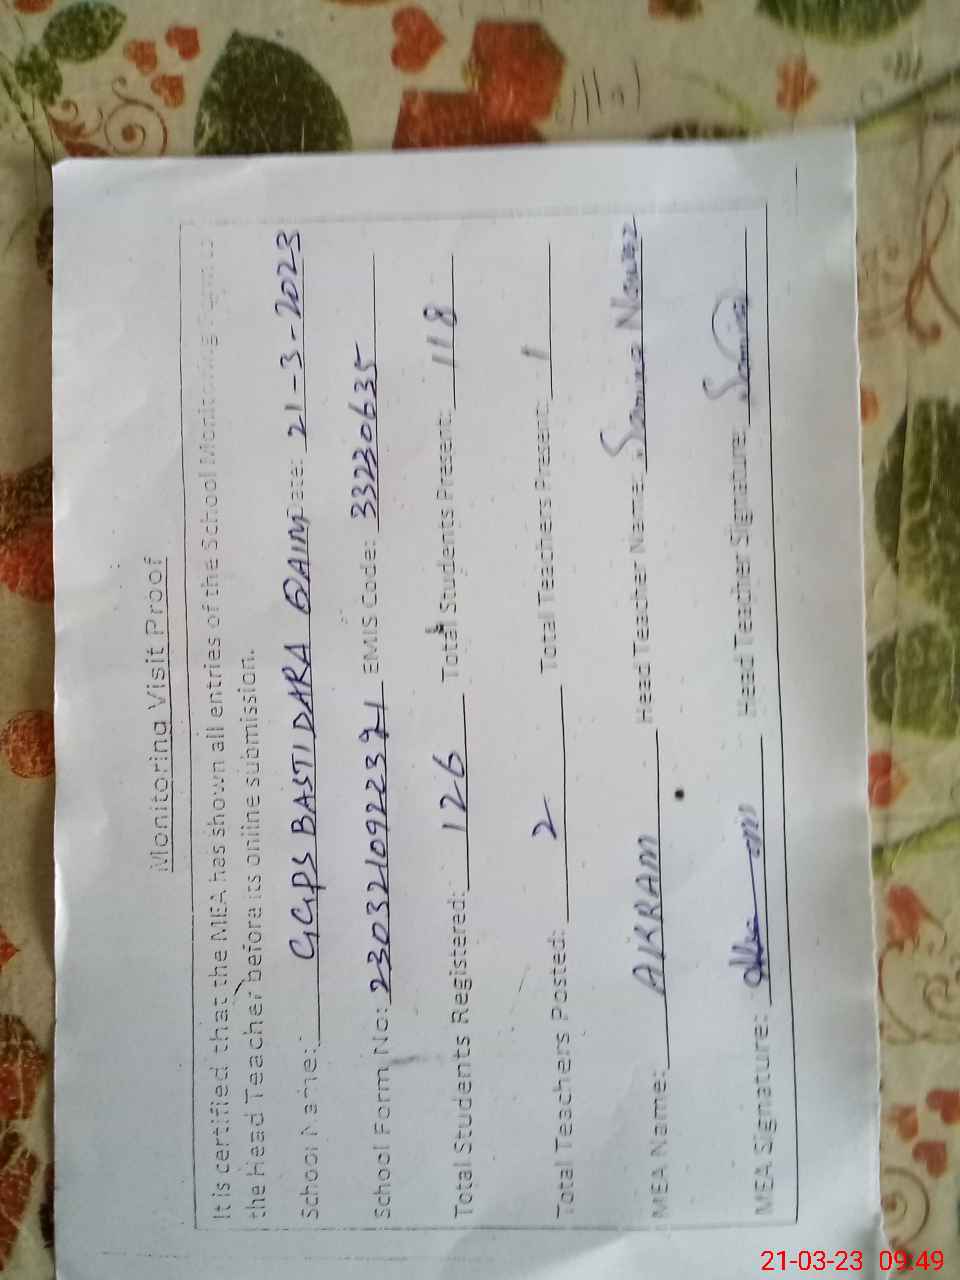 Monitoring Visit Proof
It is certified that the MEA has shown all entries of the School Monitoring Form to
the Head Teacher before its online submission.
School Name: GGPS BASTI DARA QAIM Date: 21-3-2023
School Form No: 2303210922391 EMIS Code: 33230635
Total Students Registered: 126 Total Students Present: 118
Total Teachers Posted: 2 Total Teachers Present: 1
MEA Name: AKRAM Head Teacher Name: Samina Nawaz
MEA Signature: Head Teacher Signature: Samina
21-03-23 09:49